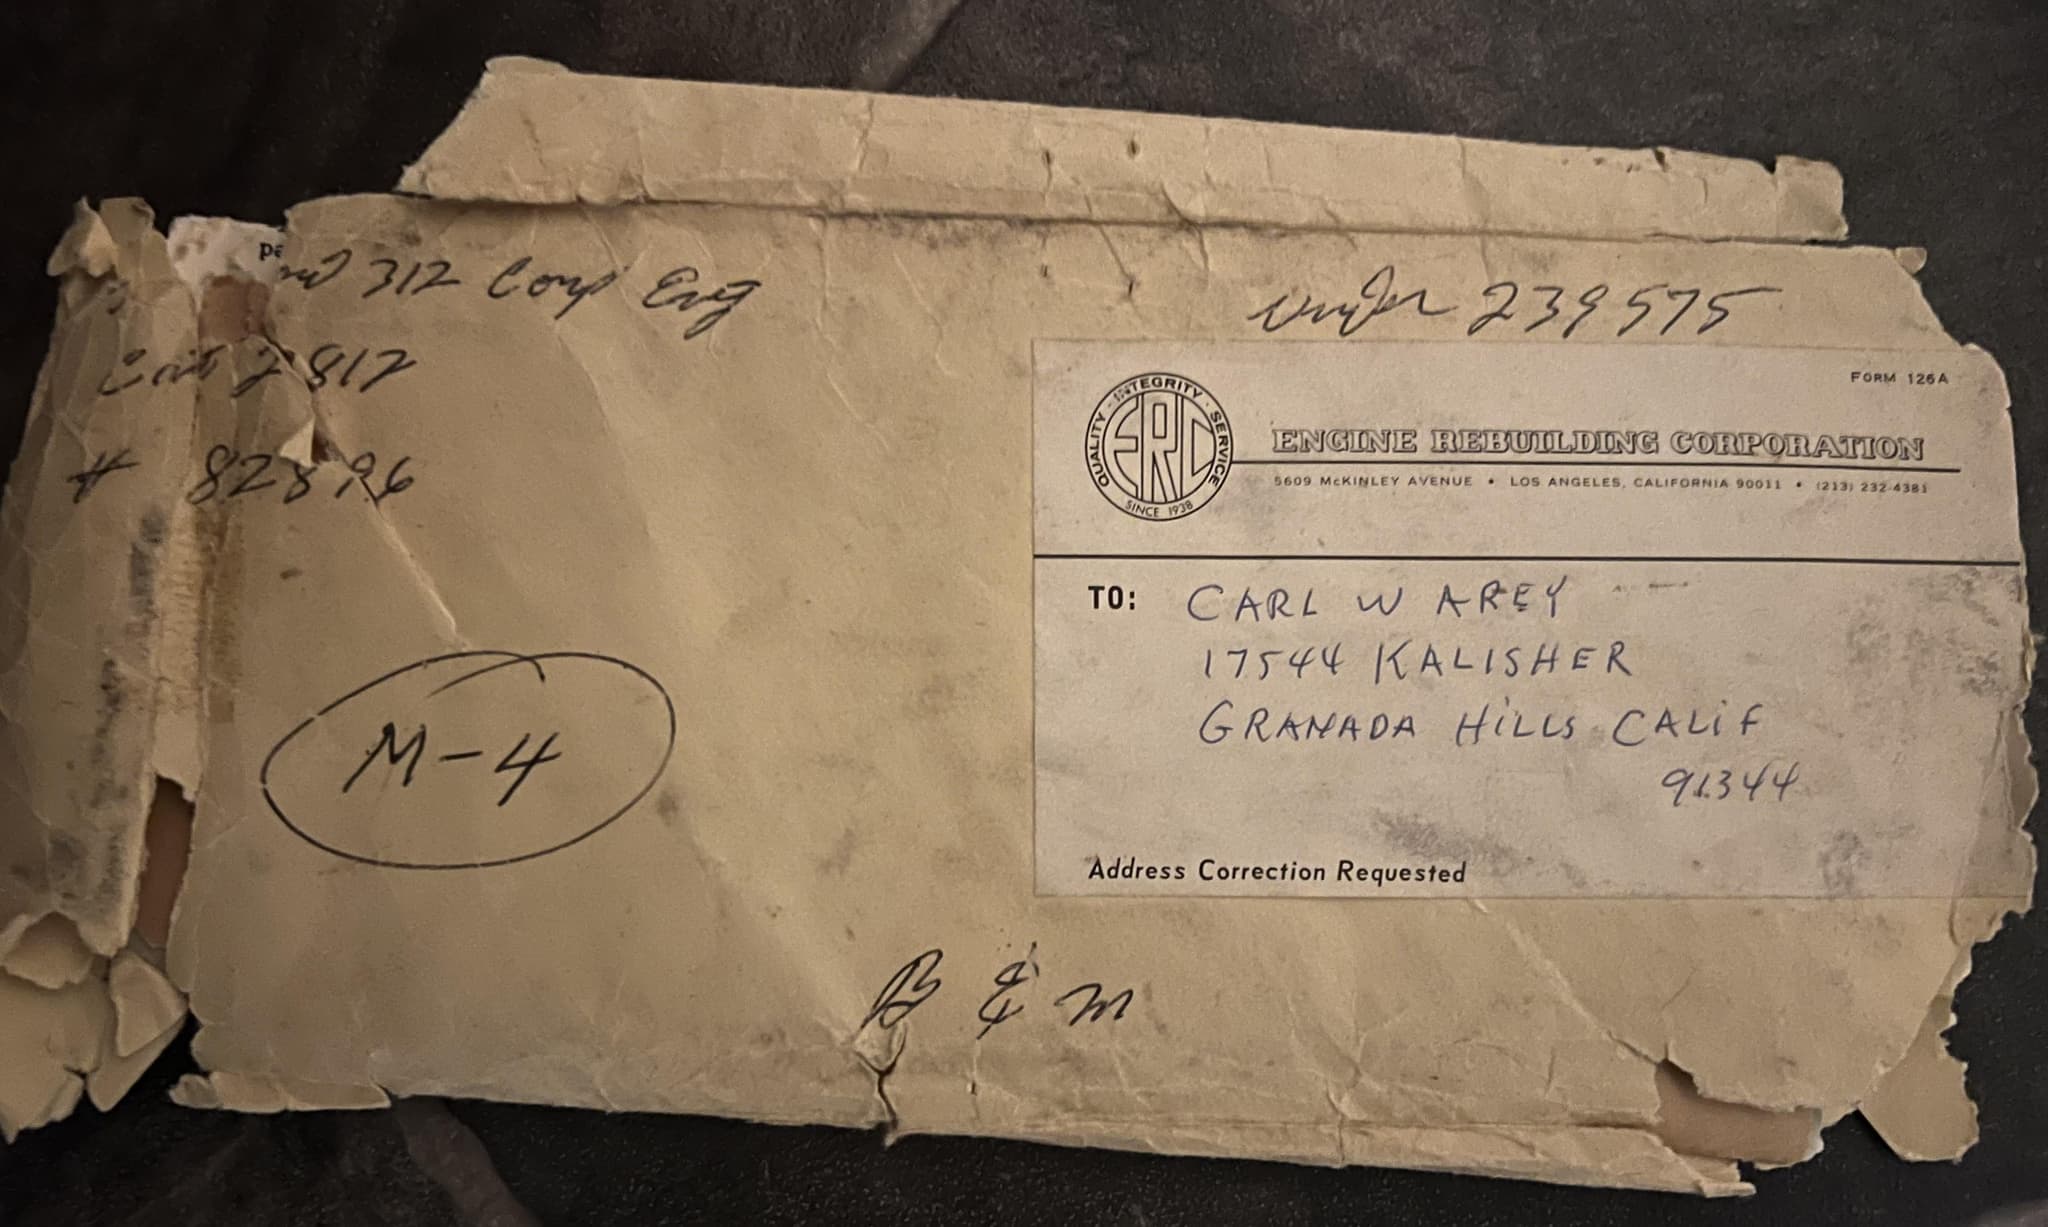 pa
312 Comp Eng
under 239575
2812
# 82896
FORM 126A
QUALITY · INTEGRITY · SERVICE
ERC
SINCE 1938
ENGINE REBUILDING CORPORATION
5609 McKINLEY AVENUE • LOS ANGELES, CALIFORNIA 90011 • (213) 232-4381
TO: CARL W AREY
17544 KALISHER
GRANADA HILLS CALIF
91344
Address Correction Requested
M-4
B & M